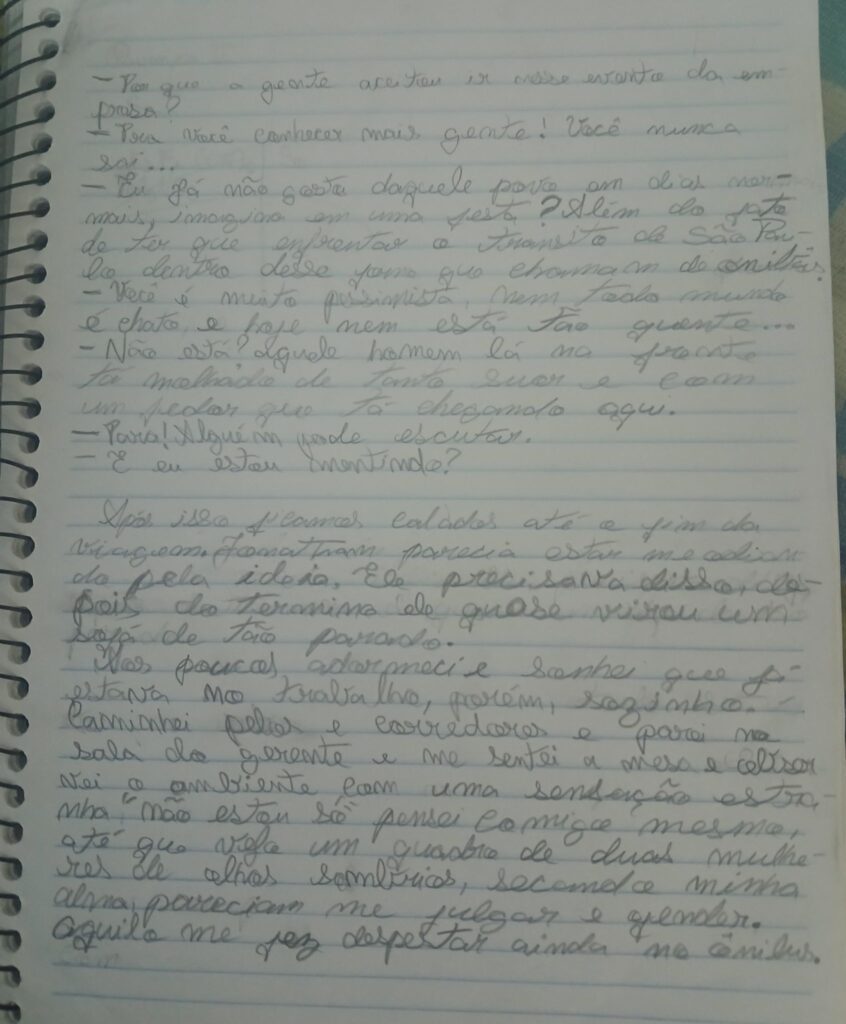 - Por que a gente aceitou ir nesse evento da em-
presa?
- Pra você conhecer mais gente! Você nunca
sai...
- Eu já não gosto daquele povo em dias nor-
mais, imagina em uma festa? Além do fato
de ter que enfrentar o trânsito de São Pau-
lo dentro desse forno que chamam de ônibus.
- Você é muito pessimista, nem todo mundo
é chato, e hoje nem está tão quente...
- Não está? Aquele homem lá na frente
tá molhado de tanto suor e com
um fedor que tá chegando aqui.
- Para! Alguém pode escutar.
- E eu estou mentindo?
Após isso ficamos calados até o fim da
viagem. Jonatham parecia estar me odian
do pela ideia. Ele precisava disso, de-
pois do termino ele quase virou um
sofá de tão parado.
Aos poucos adormeci e sonhei que já
estava no trabalho, porém, sozinho.
Caminhei pelos e corredores e parei na
sala do gerente e me sentei a mesa e obser
vei o ambiente com uma sensação estra-
nha "não estou só" pensei comigo mesmo,
até que vejo um quadro de duas mulhe-
res de olhos sombrios, secando minha
alma, pareciam me julgar e
aquilo me fez despertar ainda no ônibus.